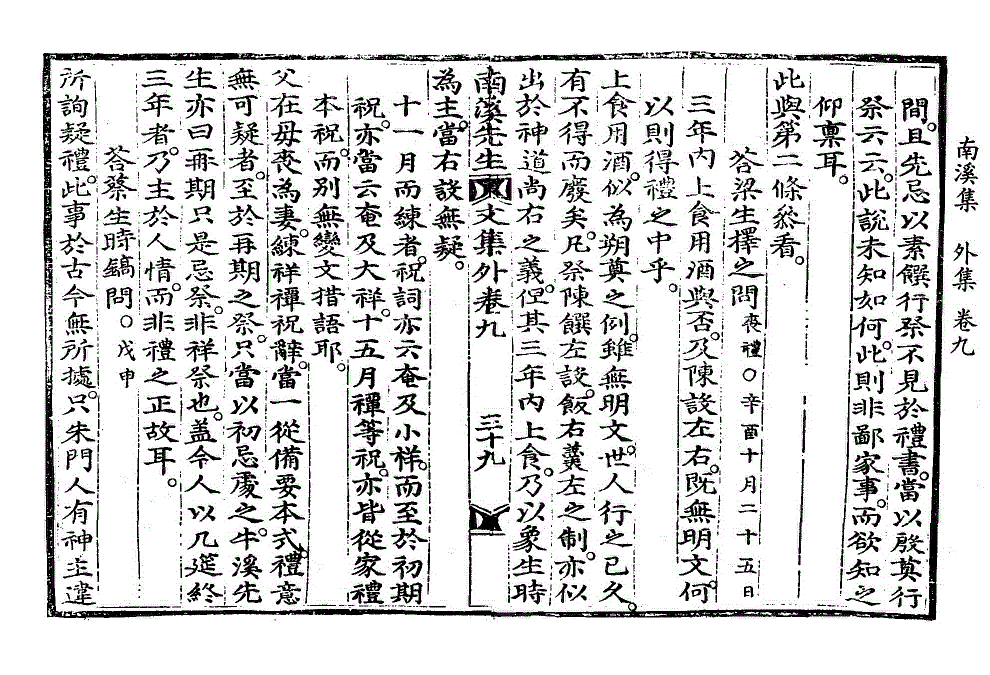 南溪集　外集　卷九
間。且先忌以素饌行祭不見於禮書。當以殷奠行
祭云云。此說未知如何。此則非鄙家事。而欲知之
仰稟耳。
此與第二條參看。
答梁生擇之問喪禮○辛酉十月二十五日
三年內上食用酒與否。及陳設左右。旣無明文。何
以則得禮之中乎。
上食用酒。似為朔奠之例。雖無明文。世人行之已久。
有不得而廢矣。凡祭陳饌左設。飯右羹左之制。亦似
出於神道尚右之義。但其三年內上食。乃以象生時
南溪先生文集外卷九　三十九
為主。當右設無疑。
十一月而練者。祝詞亦云奄及小祥。而至於初期
祝。亦當云奄及大祥。十五月禫等祝。亦皆從家禮
本祝。而別無變文措語耶。
父在母喪為妻。練祥禫祝辭。當一從備要本式。禮意
無可疑者。至於再期之祭。只當以初忌處之。牛溪先
生亦曰再期只是忌祭。非祥祭也。盖今人以几筵終
三年者。乃主於人情。而非禮之正故耳。
答蔡生時鎬問。○戊申
所詢疑禮。此事於古今無所據。只朱門人有神主違